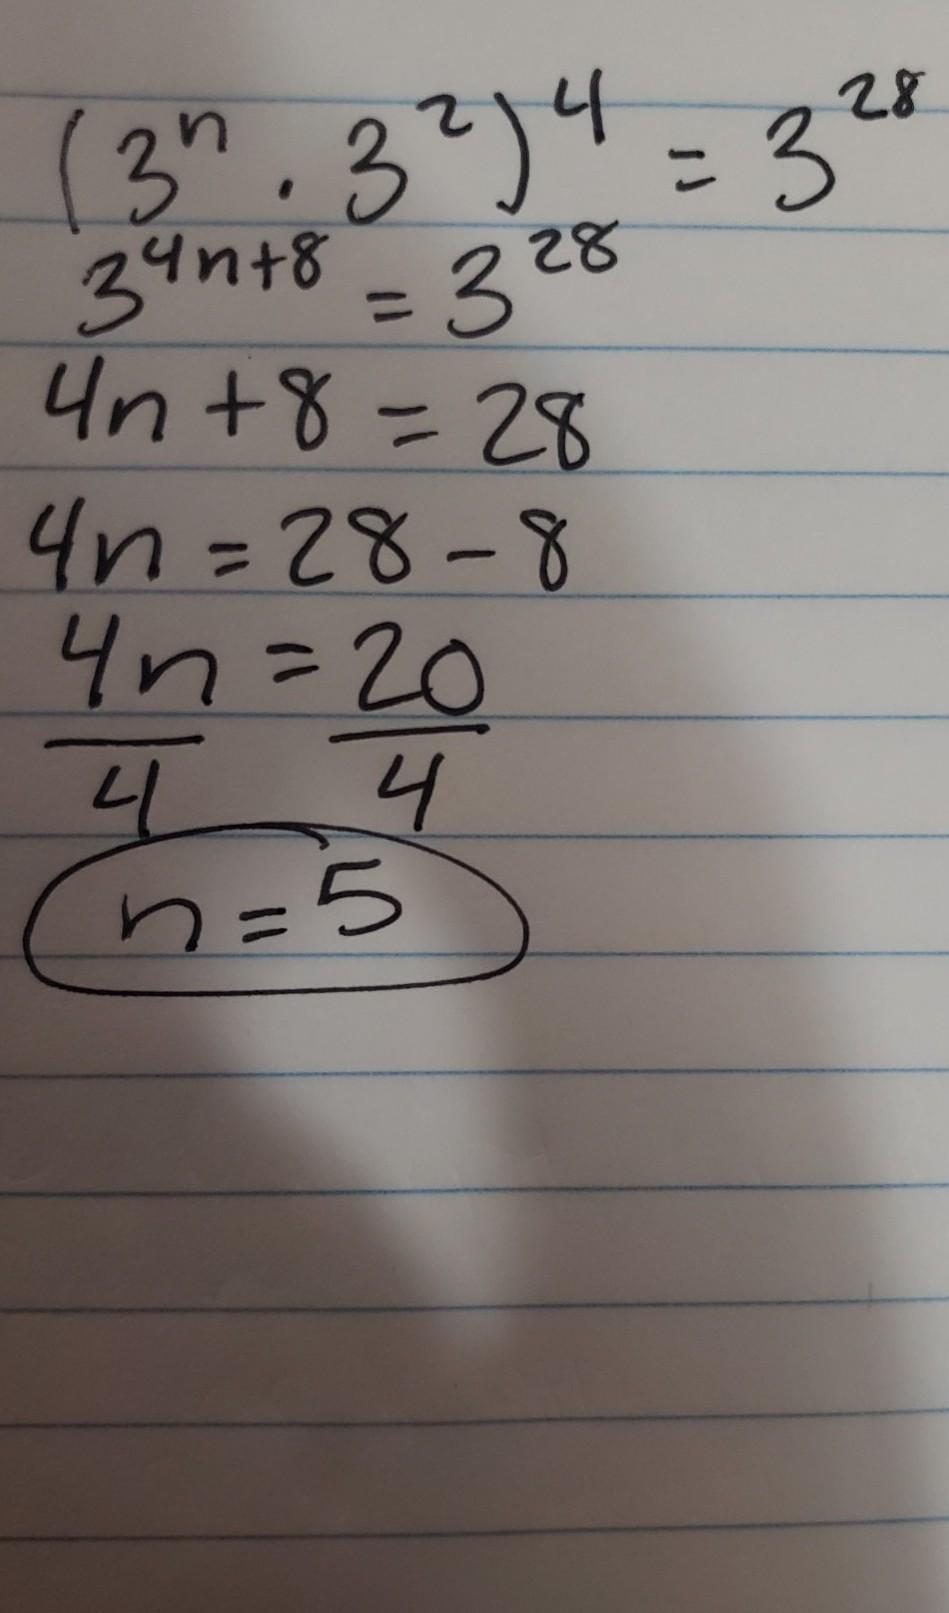 (3ⁿ · 3²)⁴ = 3²⁸
3⁴ⁿ⁺⁸ = 3²⁸
4n + 8 = 28
4n = 28 - 8
4n = 20
4 4
n = 5